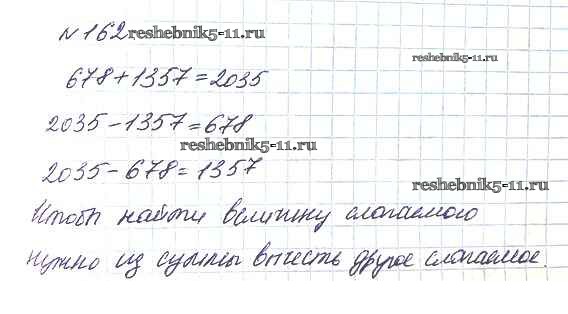 № 162 reshebnik5-11.ru
reshebnik5-11.ru
678+1357=2035
2035-1357=678
reshebnik5-11.ru
2035-678=1357
reshebnik5-11.ru
Чтобы найти величину слагаемого
нужно из суммы вычесть другое слагаемое.